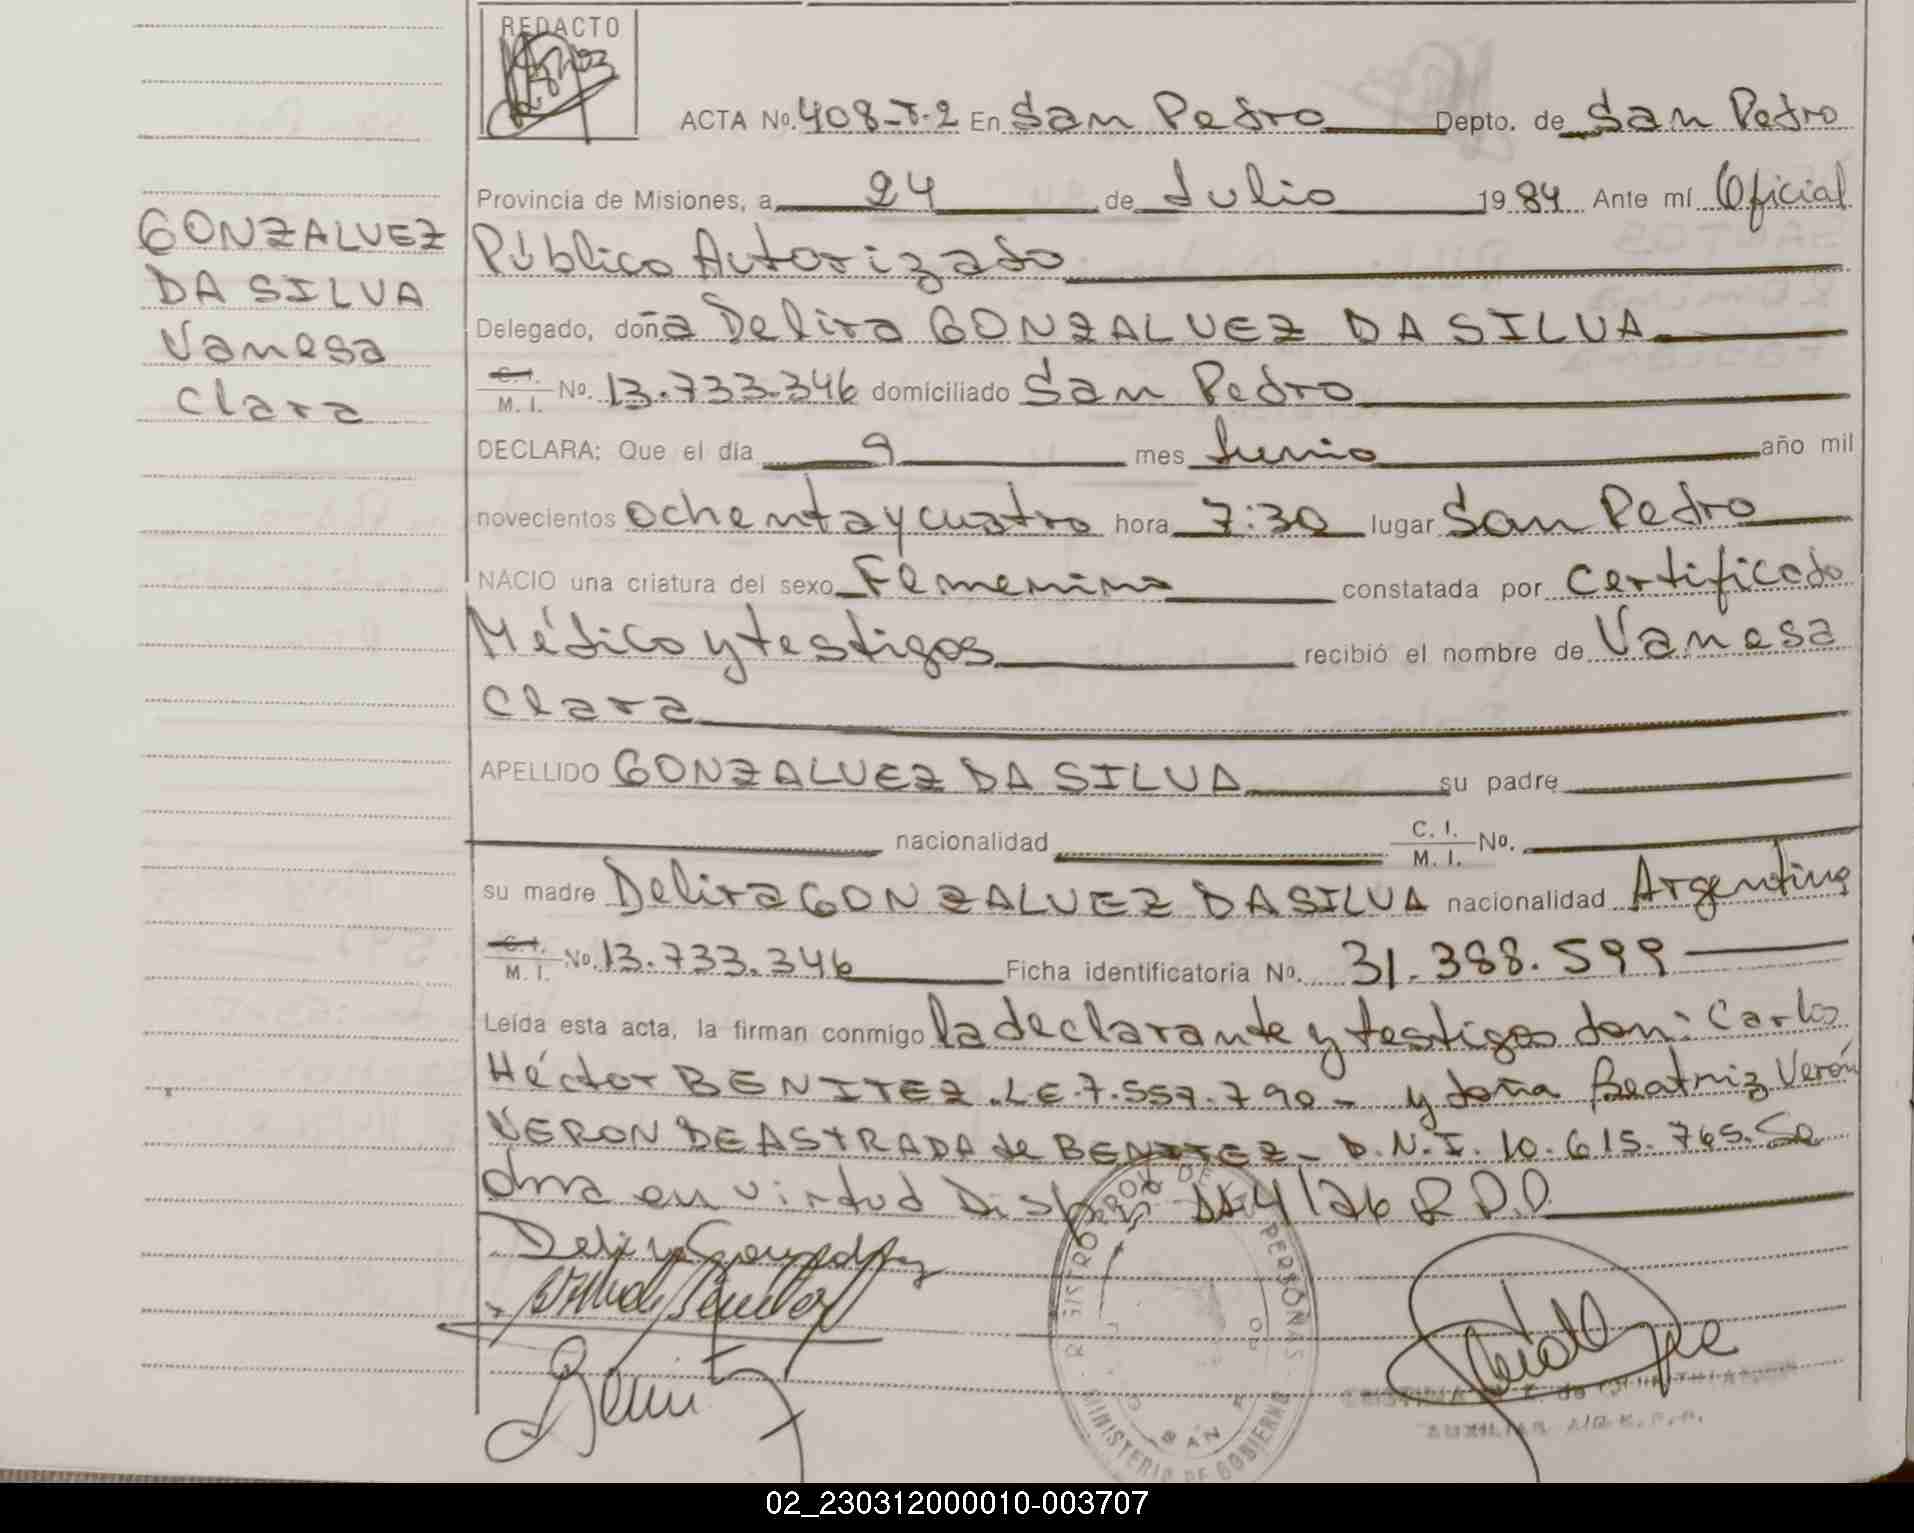 REDACTO
ACTA Nº. 408-T-2 En San Pedro Depto. de San Pedro
Provincia de Misiones, a 24 de Julio 1984 Ante mí Oficial
Público Autorizado
GONZALVEZ
DA SILVA
Vanesa
Clara
Delegado, doña Delira GONZALVEZ DA SILVA
C.I. M. I. No. 13.733.346 domiciliado San Pedro
DECLARA: Que el día 9 mes Junio año mil
novecientos ochenta y cuatro hora 7:30 lugar San Pedro
NACIO una criatura del sexo Femenino constatada por Certificado
Médico y testigos recibió el nombre de Vanesa
Clara
APELLIDO GONZALVEZ DA SILVA su padre
nacionalidad C. I. M. I. No.
su madre Delira GONZALVEZ DA SILVA nacionalidad Argentina
C.I. M. I. No. 13.733.346 Ficha identificatoria Nº. 31.388.599
Leída esta acta, la firman conmigo la declarante y testigos don: Carlos
Héctor BENITEZ. L.E. 7.557.790 - y doña Beatriz Verón
VERON DE ASTRADA de BENITEZ - D.N.I. 10.615.765. Se
en virtud Disp. 4/26 R.D.D.
MINISTERIO DE GOBIERNO
02_230312000010-003707